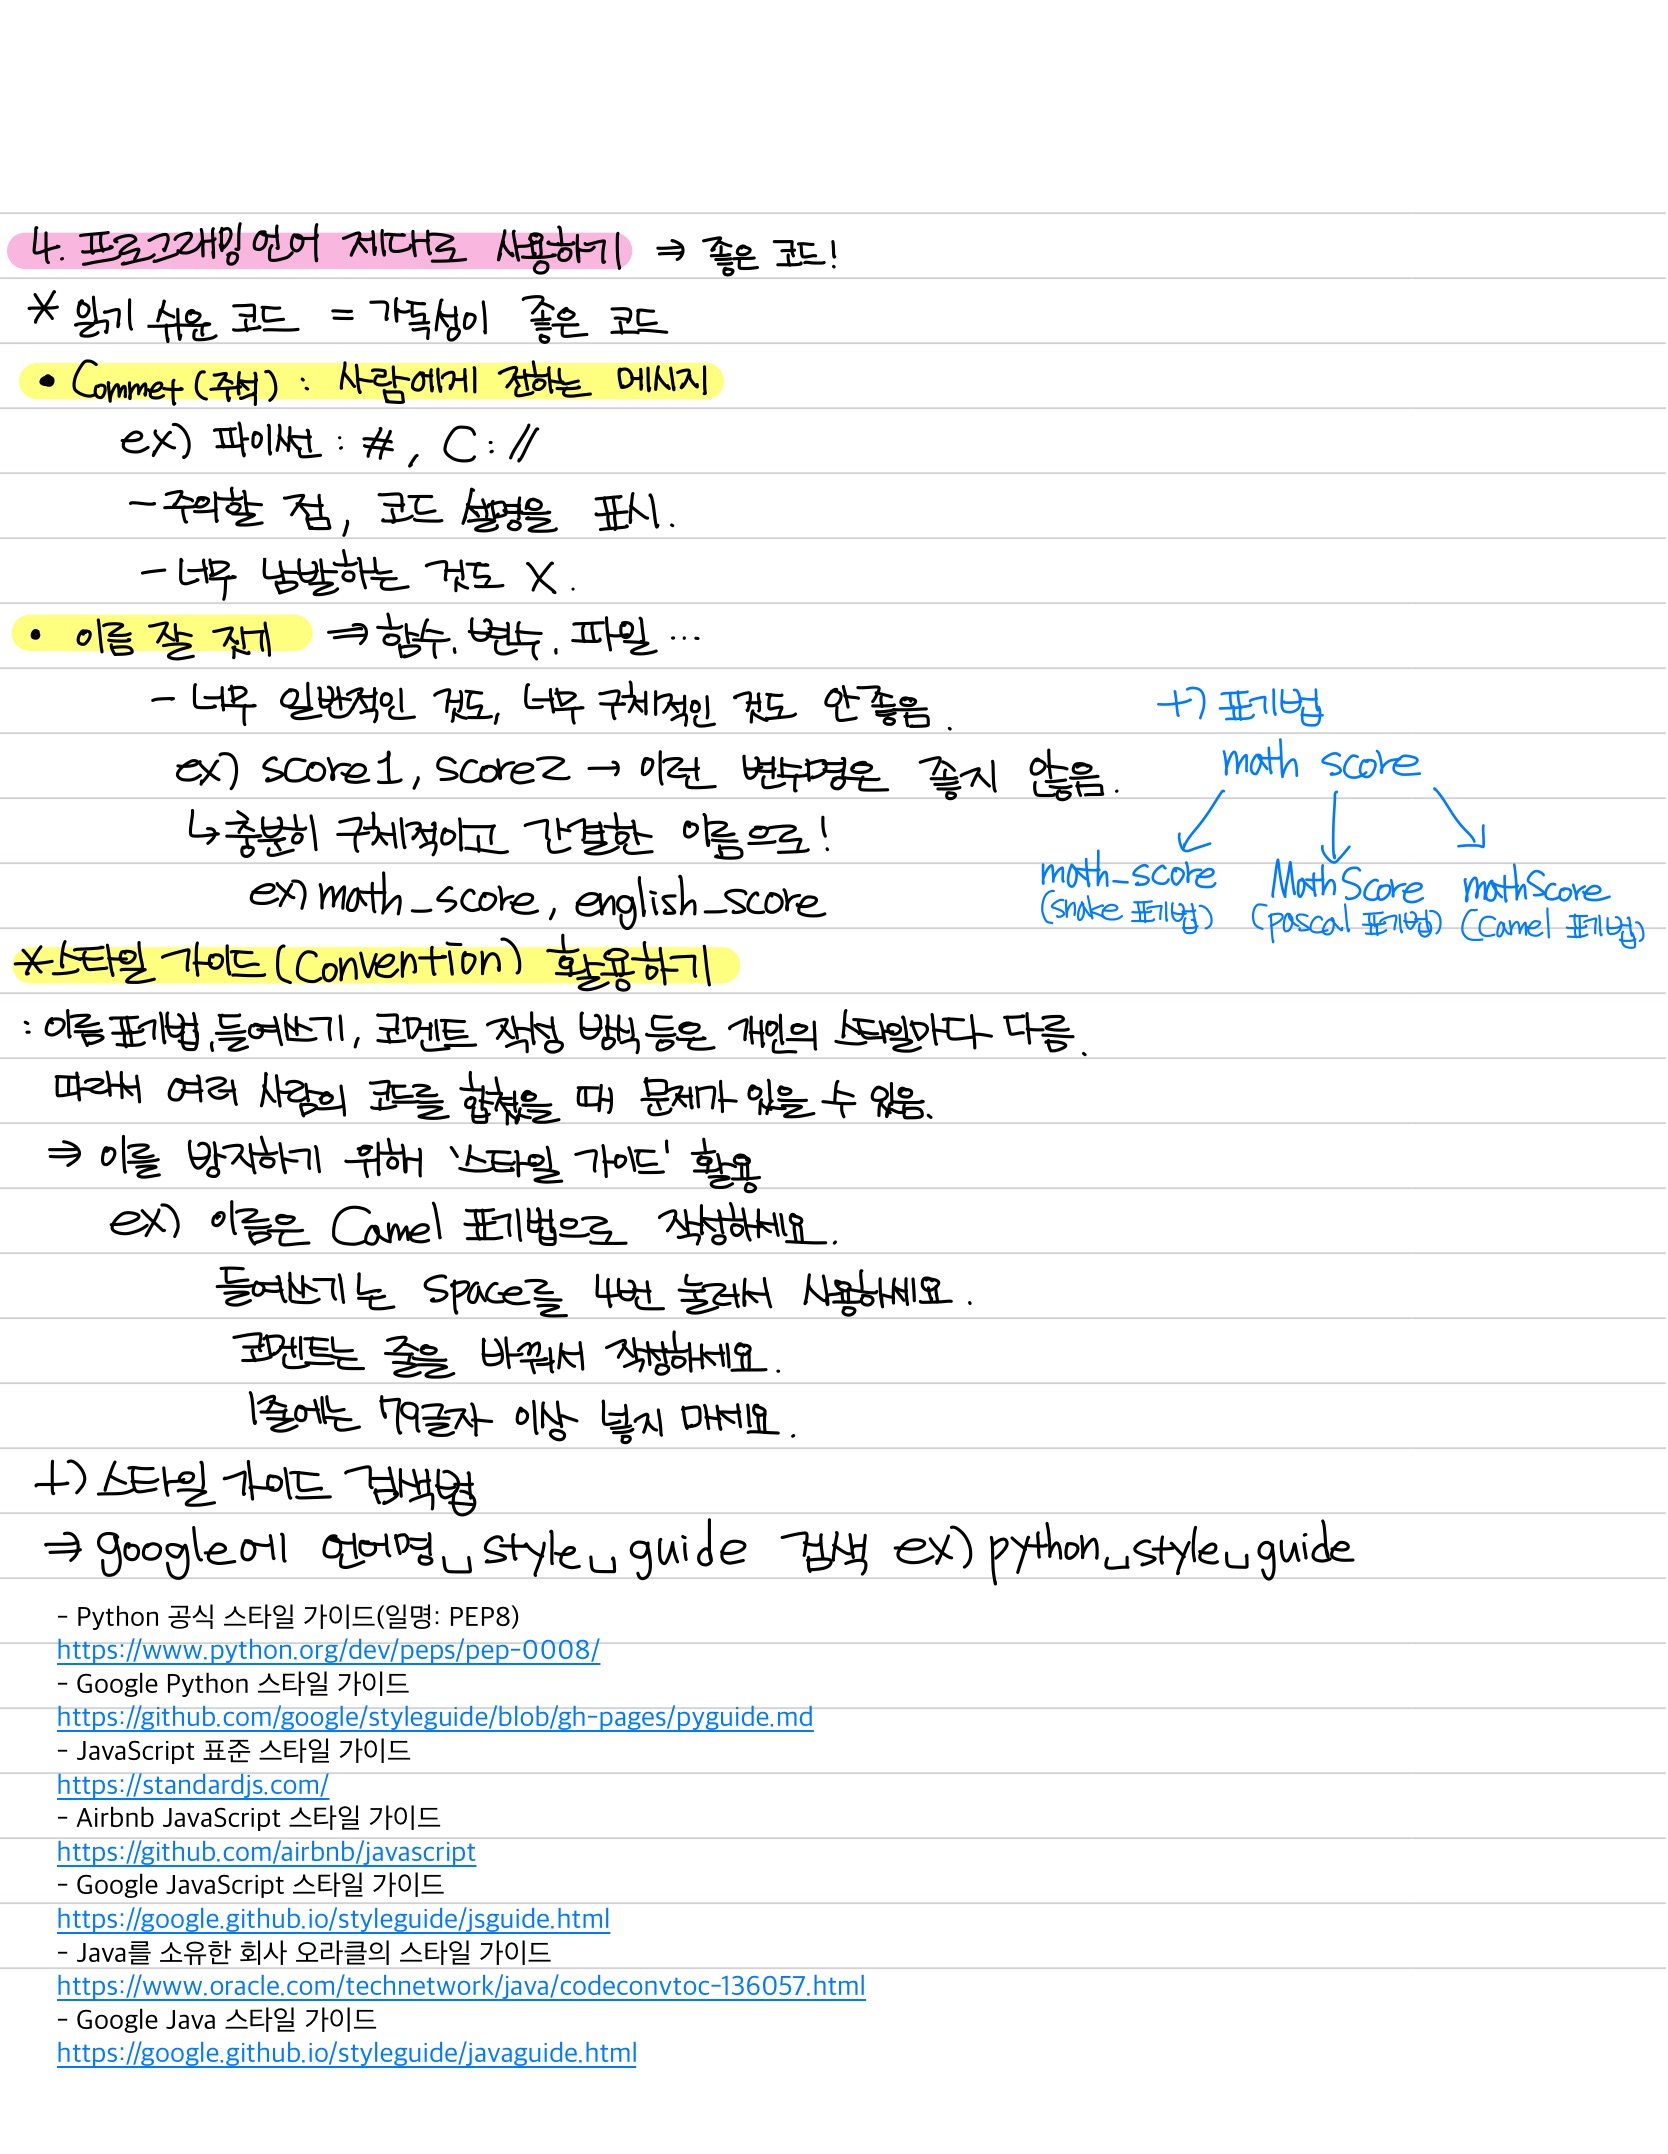 4. 프로그래밍 언어 제대로 사용하기 ⇒ 좋은 코드!
* 읽기 쉬운 코드 = 가독성이 좋은 코드
• Commet (주석) : 사람에게 전하는 메시지
ex) 파이썬 : #, C : //
- 주의할 점, 코드 설명을 표시.
- 너무 남발하는 것도 X.
• 이름 잘 짓기 ⇒ 함수, 변수, 파일 ...
- 너무 일반적인 것도, 너무 구체적인 것도 안좋음.
ex) score1, score2 → 이런 변수명은 좋지 않음.
↳ 충분히 구체적이고 간결한 이름으로!
ex) math_score, english_score
+) 표기법
math score
math_score MathScore mathScore
(snake 표기법) (pascal 표기법) (camel 표기법)
* 스타일 가이드 (Convention) 활용하기
: 이름 표기법, 들여쓰기, 코멘트 작성 방식 등은 개인의 스타일마다 다름.
따라서 여러 사람의 코드를 합쳤을 때 문제가 있을 수 있음.
⇒ 이를 방지하기 위해 '스타일 가이드' 활용
ex) 이름은 Camel 표기법으로 작성하세요.
들여쓰기는 Space를 4번 눌러서 사용하세요.
코멘트는 줄을 바꿔서 작성하세요.
1줄에는 79글자 이상 넣지 마세요.
+) 스타일 가이드 검색법
⇒ google에 언어명␣style␣guide 검색 ex) python␣style␣guide
- Python 공식 스타일 가이드(일명: PEP8)
https://www.python.org/dev/peps/pep-0008/
- Google Python 스타일 가이드
https://github.com/google/styleguide/blob/gh-pages/pyguide.md
- JavaScript 표준 스타일 가이드
https://standardjs.com/
- Airbnb JavaScript 스타일 가이드
https://github.com/airbnb/javascript
- Google JavaScript 스타일 가이드
https://google.github.io/styleguide/jsguide.html
- Java를 소유한 회사 오라클의 스타일 가이드
https://www.oracle.com/technetwork/java/codeconvtoc-136057.html
- Google Java 스타일 가이드
https://google.github.io/styleguide/javaguide.html